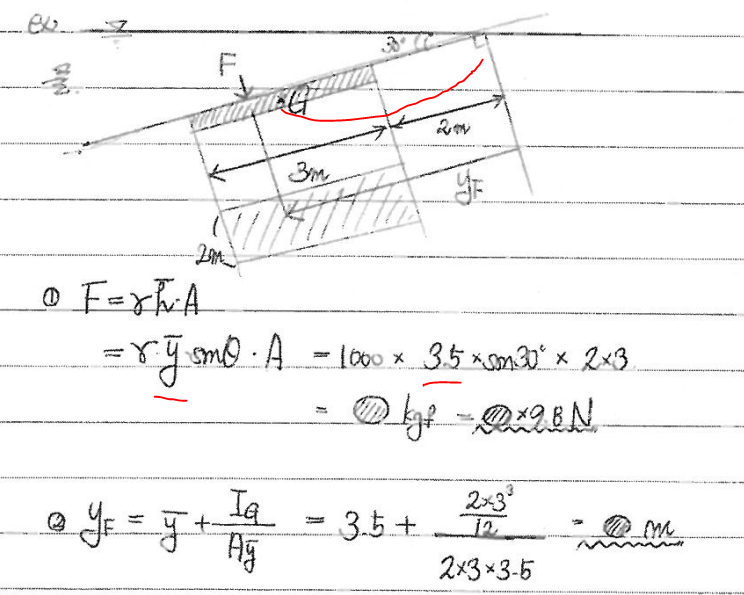 ex
30°
F
G
2m
3m
y_F
2m
① F = γh̄·A
= γȳ sinθ · A = 1000 × 3.5 × sin30° × 2×3
= kgf = ×9.8N
② y_F = ȳ + I_G / Aȳ = 3.5 + (2×3³ / 12) / (2×3×3.5) = m